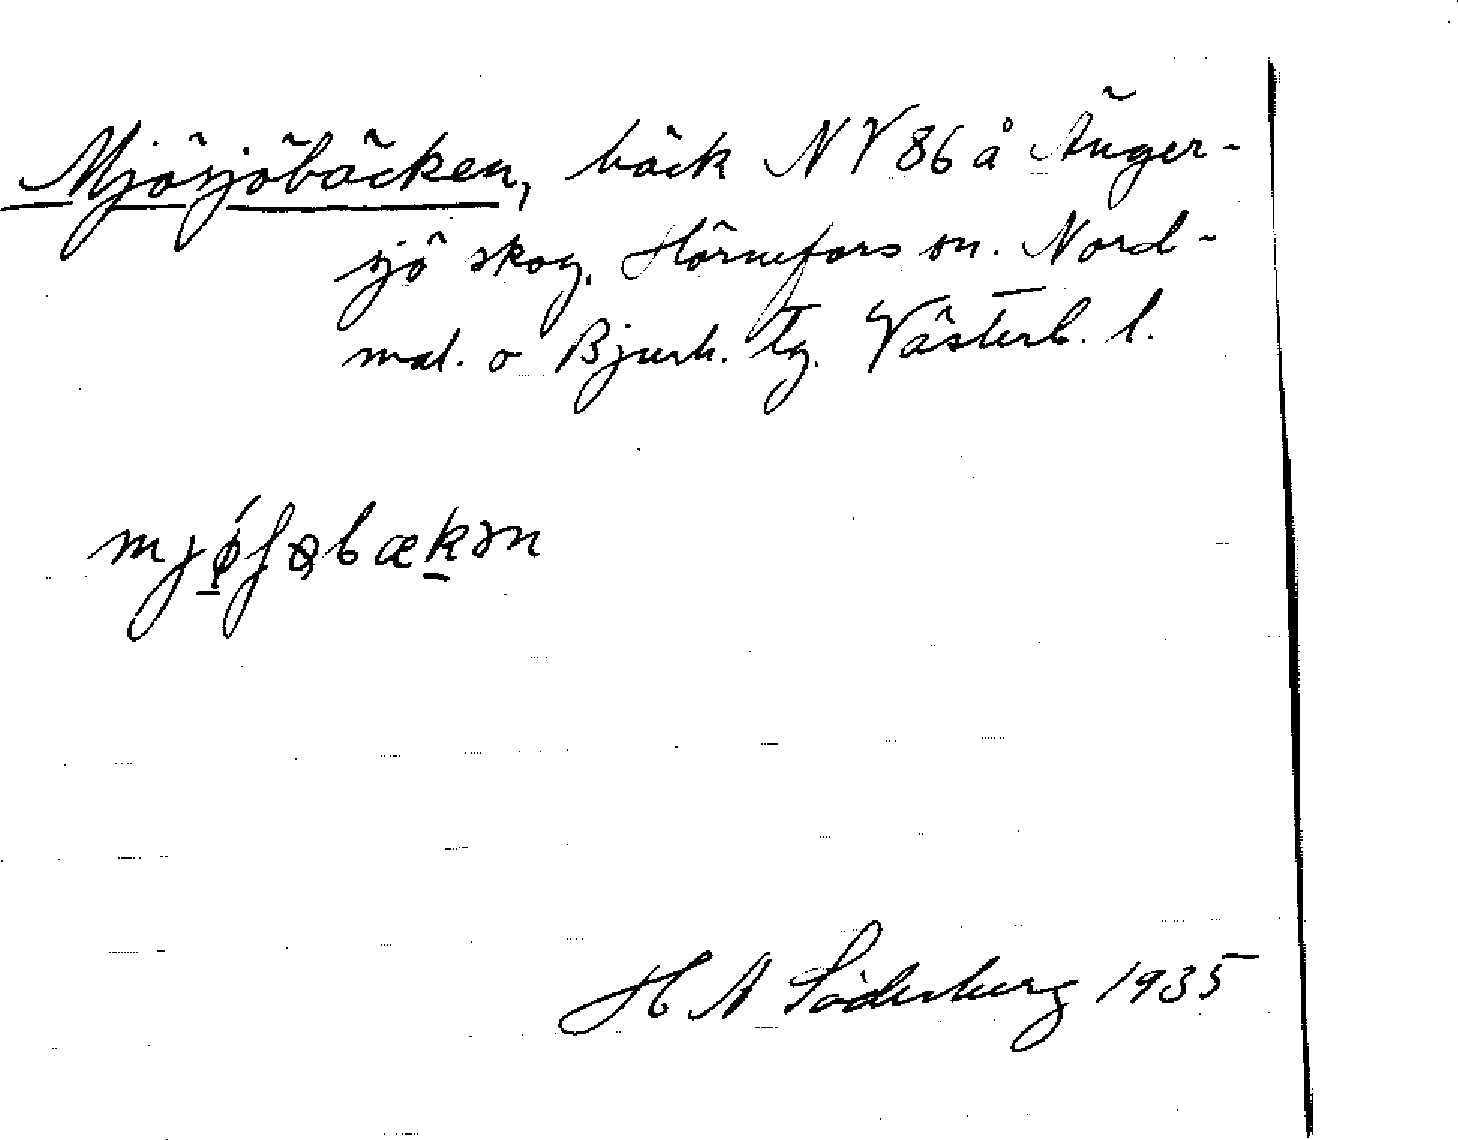 Mjösjöbäcken, bäck NV 86 å Ånger-
sjö skog, Hörnefors sn. Nord-
mal. o Bjurh. tg. Västerb. l.
H N Söderberg 1935